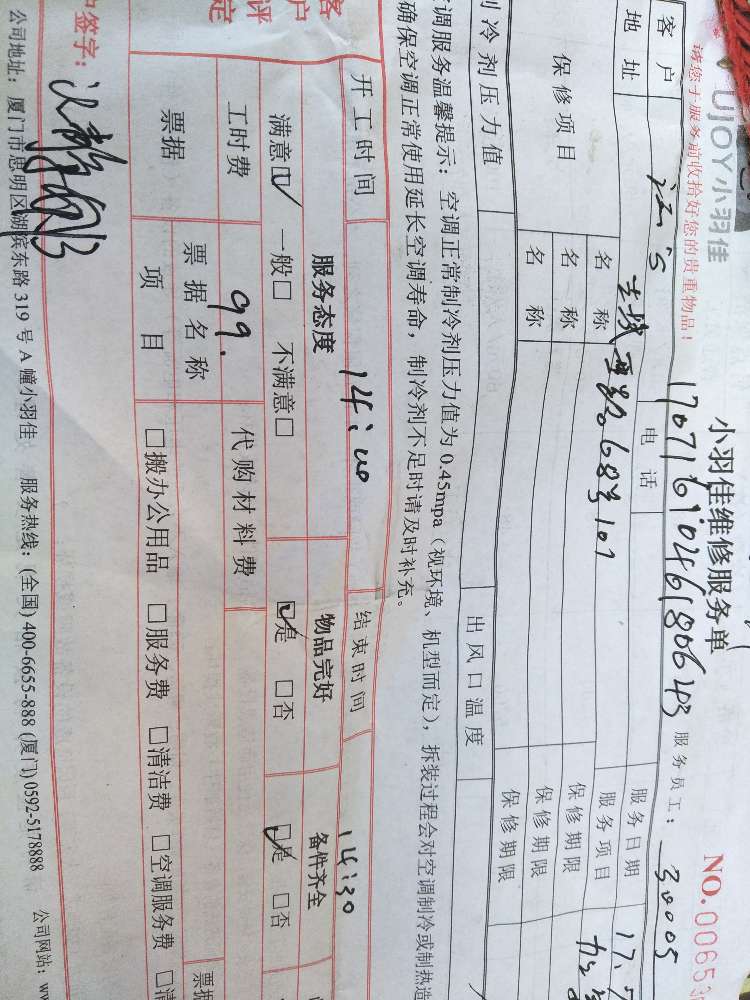 UJOY小羽佳
小羽佳维修服务单
NO.0065
请您于服务前收拾好您的贵重物品！
17071610461806643
服务员工：30005
客户 江's 电话 服务日期 17.
地址 68号101 服务项目
保修项目 名称 保修期限
名称 保修期限
名称 保修期限
制冷剂压力值 出风口温度
调服务温馨提示：空调正常制冷剂压力值为0.45mpa（视环境、机型而定），拆装过程会对空调制冷或制热造
确保空调正常使用延长空调寿命，制冷剂不足时请及时补充。
开工时间 14:00 结束时间 14:30
服务态度 物品完好 备件齐全
满意☑ 一般□ 不满意□ ☑是 □否 ☑是 □否
工时费 99. 代购材料费
票据 票据名称 票据
项目 □搬办公用品 □服务费 □清洁费 □空调服务费 □清
签字：
公司地址：厦门市思明区湖滨东路319号A幢小羽佳 服务热线：(全国) 400-6655-888 (厦门) 0592-5178888 公司网站：w